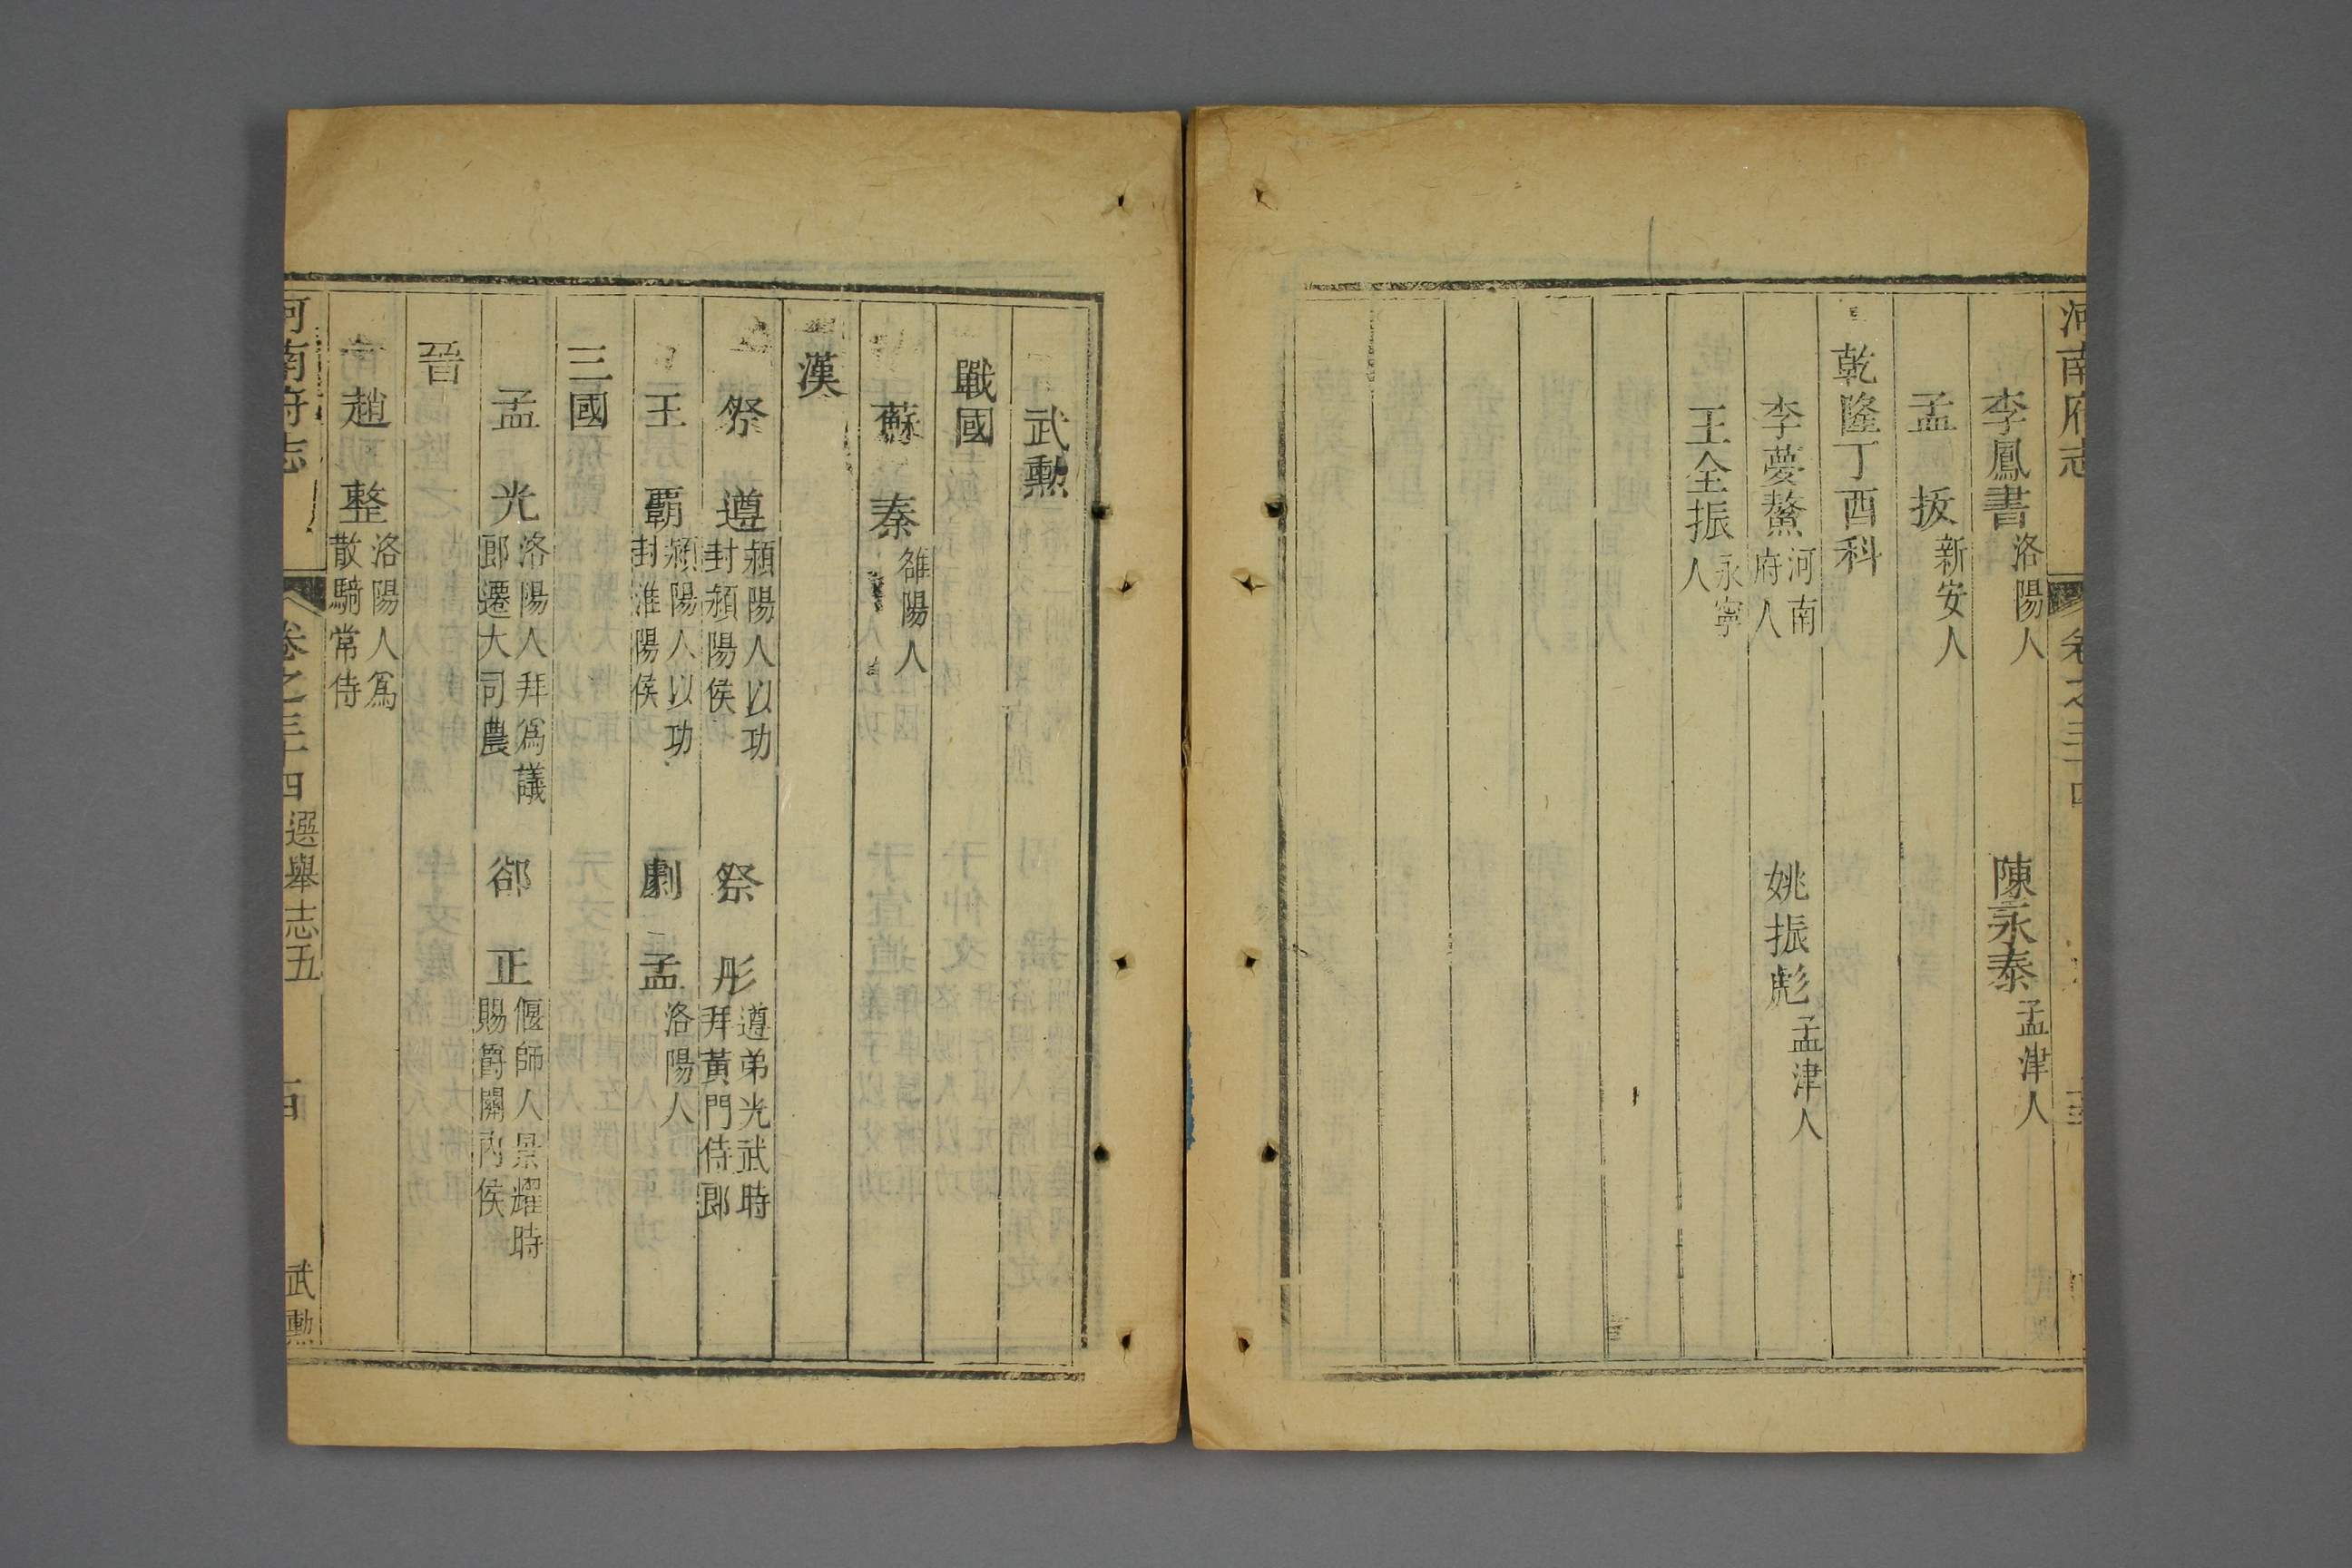 河南府志
卷之三十四
李鳳書 洛陽人 陳永泰 孟津人
孟 扳 新安人
乾隆丁酉科
李夢鰲 河南府人 姚振彪 孟津人
王全振 永寧人
武勲
戰國
蘇 秦 雒陽人
漢
祭 遵 潁陽人以功封潁陽侯 祭 彤 遵弟光武時拜黃門侍郎
王 霸 潁陽人以功封淮陽侯 劇 孟 洛陽人
三國
孟 光 洛陽人拜爲議郎遷大司農 郤 正 偃師人景耀時賜爵關內侯
晉
趙 整 洛陽人爲散騎常侍
河南府志 卷之三十四 選舉志五 武勲